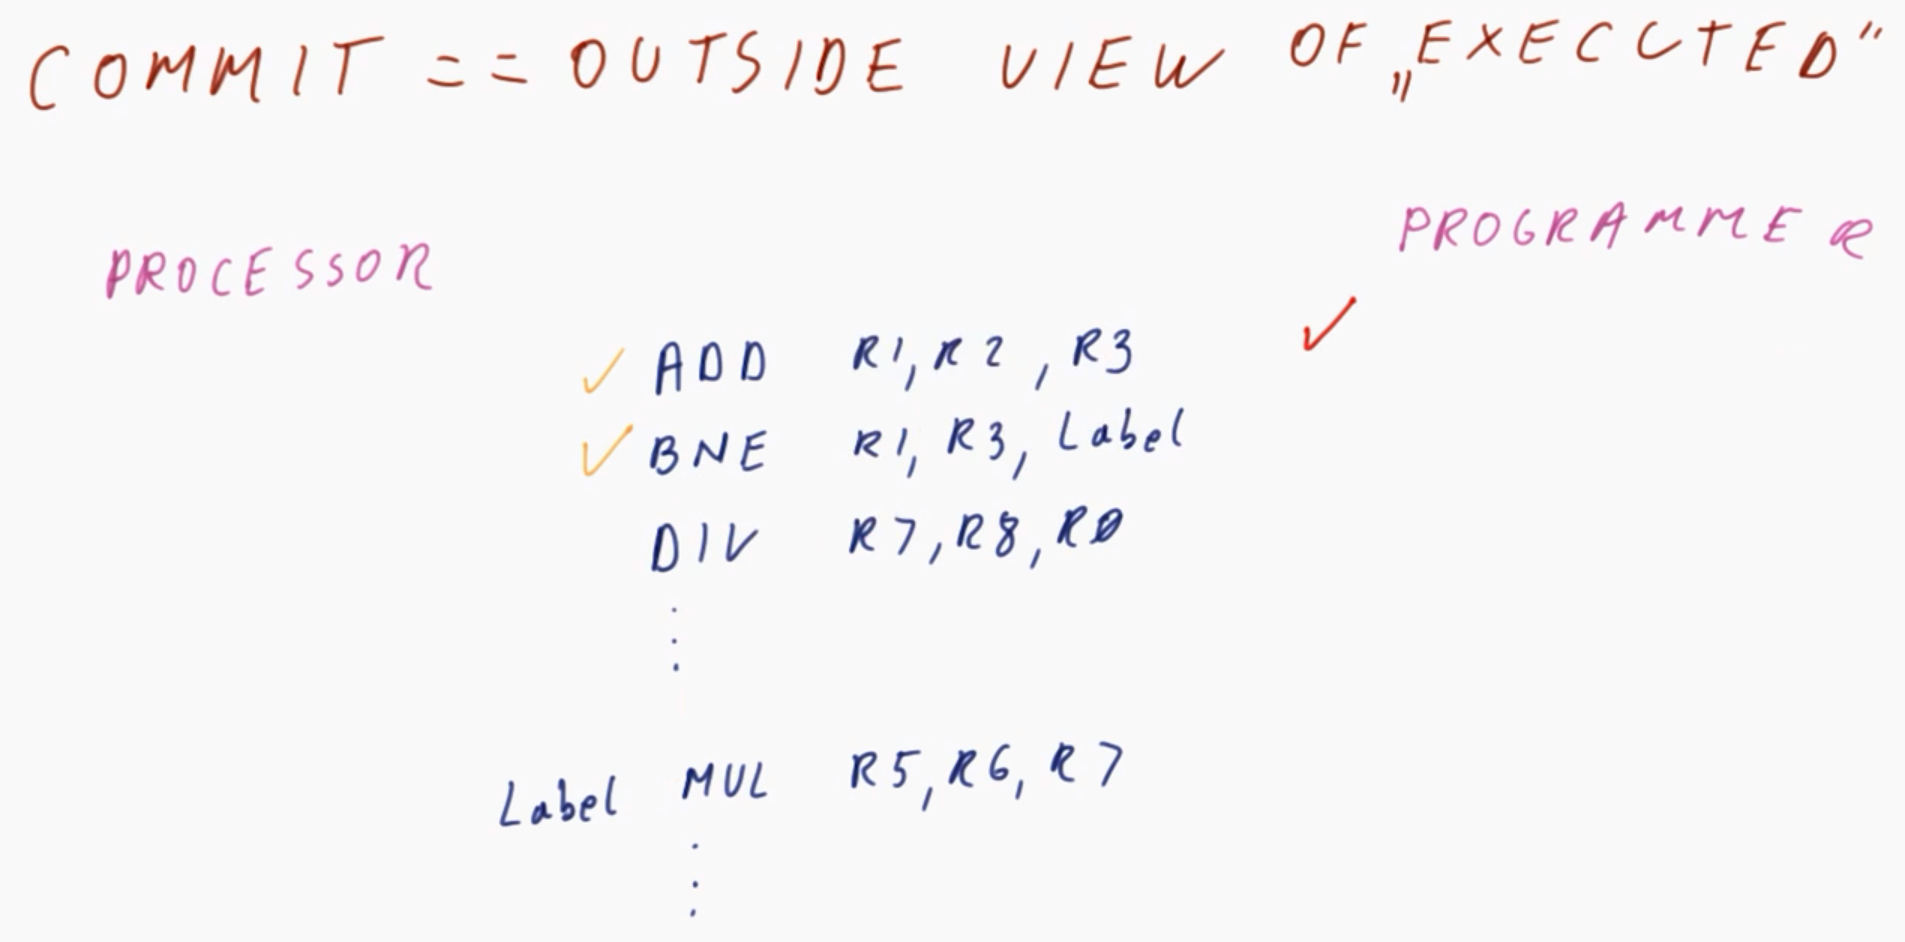 COMMIT == OUTSIDE VIEW OF „EXECUTED“
PROCESSOR
PROGRAMMER
✓ ADD R1, R2, R3 ✓
✓ BNE R1, R3, Label
DIV R7, R8, R0
⋮
Label MUL R5, R6, R7
⋮